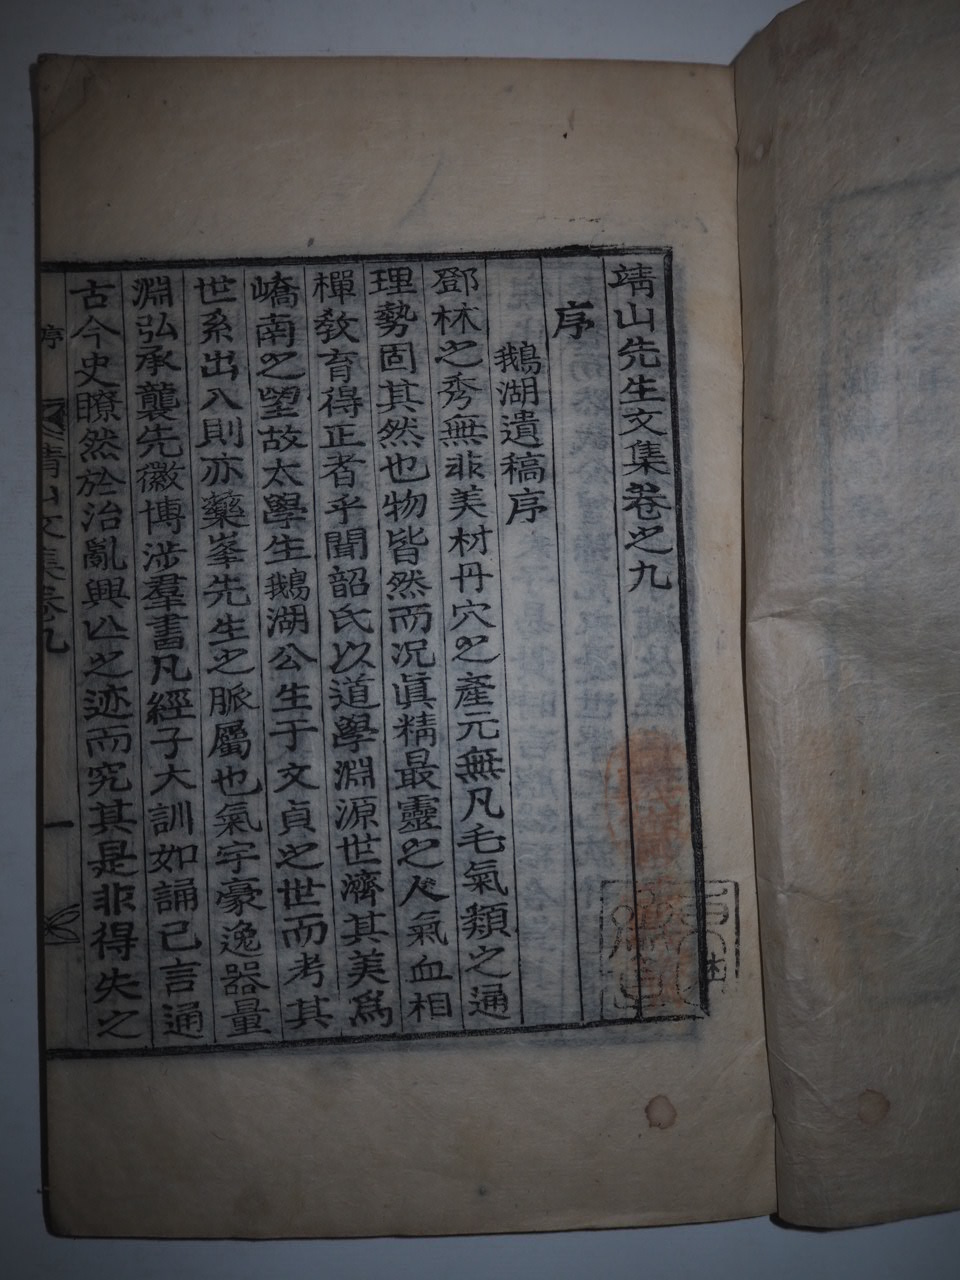 靖山先生文集卷之九
序
鵝湖遺稿序
鄧林之秀無非美材丹穴之產元無凡毛氣類之通
理勢固其然也物皆然而況眞精最靈之人氣血相
樿教育得正者乎聞韶氏以道學淵源世濟其美爲
嶠南之望故太學生鵝湖公生于文貞之世而考其
世系出入則亦藥峯先生之脈屬也氣宇豪逸器量
淵弘承襲先徽博涉羣書凡經子大訓如誦己言通
古今史瞭然於治亂興亾之迹而究其是非得失之
靖山文集卷九
序
一